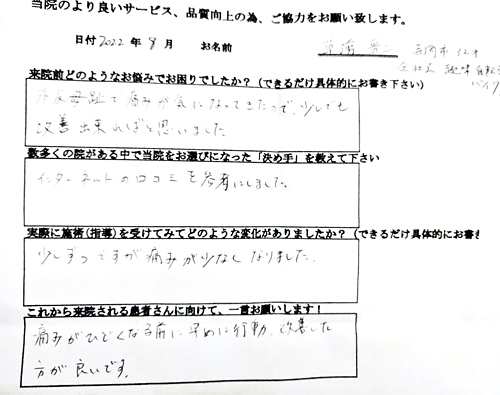 当院のより良いサービス、品質向上の為、ご協力をお願い致します。
日付 2022年 9月 お名前
来院前どのようなお悩みでお困りでしたか?(できるだけ具体的にお書き下さい)
外反母趾で痛みが気になってきたので、少しでも
改善出来ればと思いました
数多くの院がある中で当院をお選びになった「決め手」を教えて下さい
インターネットの口コミを参考にしました。
実際に施術(指導)を受けてみてどのような変化がありましたか?(できるだけ具体的にお書き
少しずつですが痛みが少なくなりました。
これから来院される患者さんに向けて、一言お願いします!
痛みがひどくなる前に早めに行動、改善した
方が良いです。